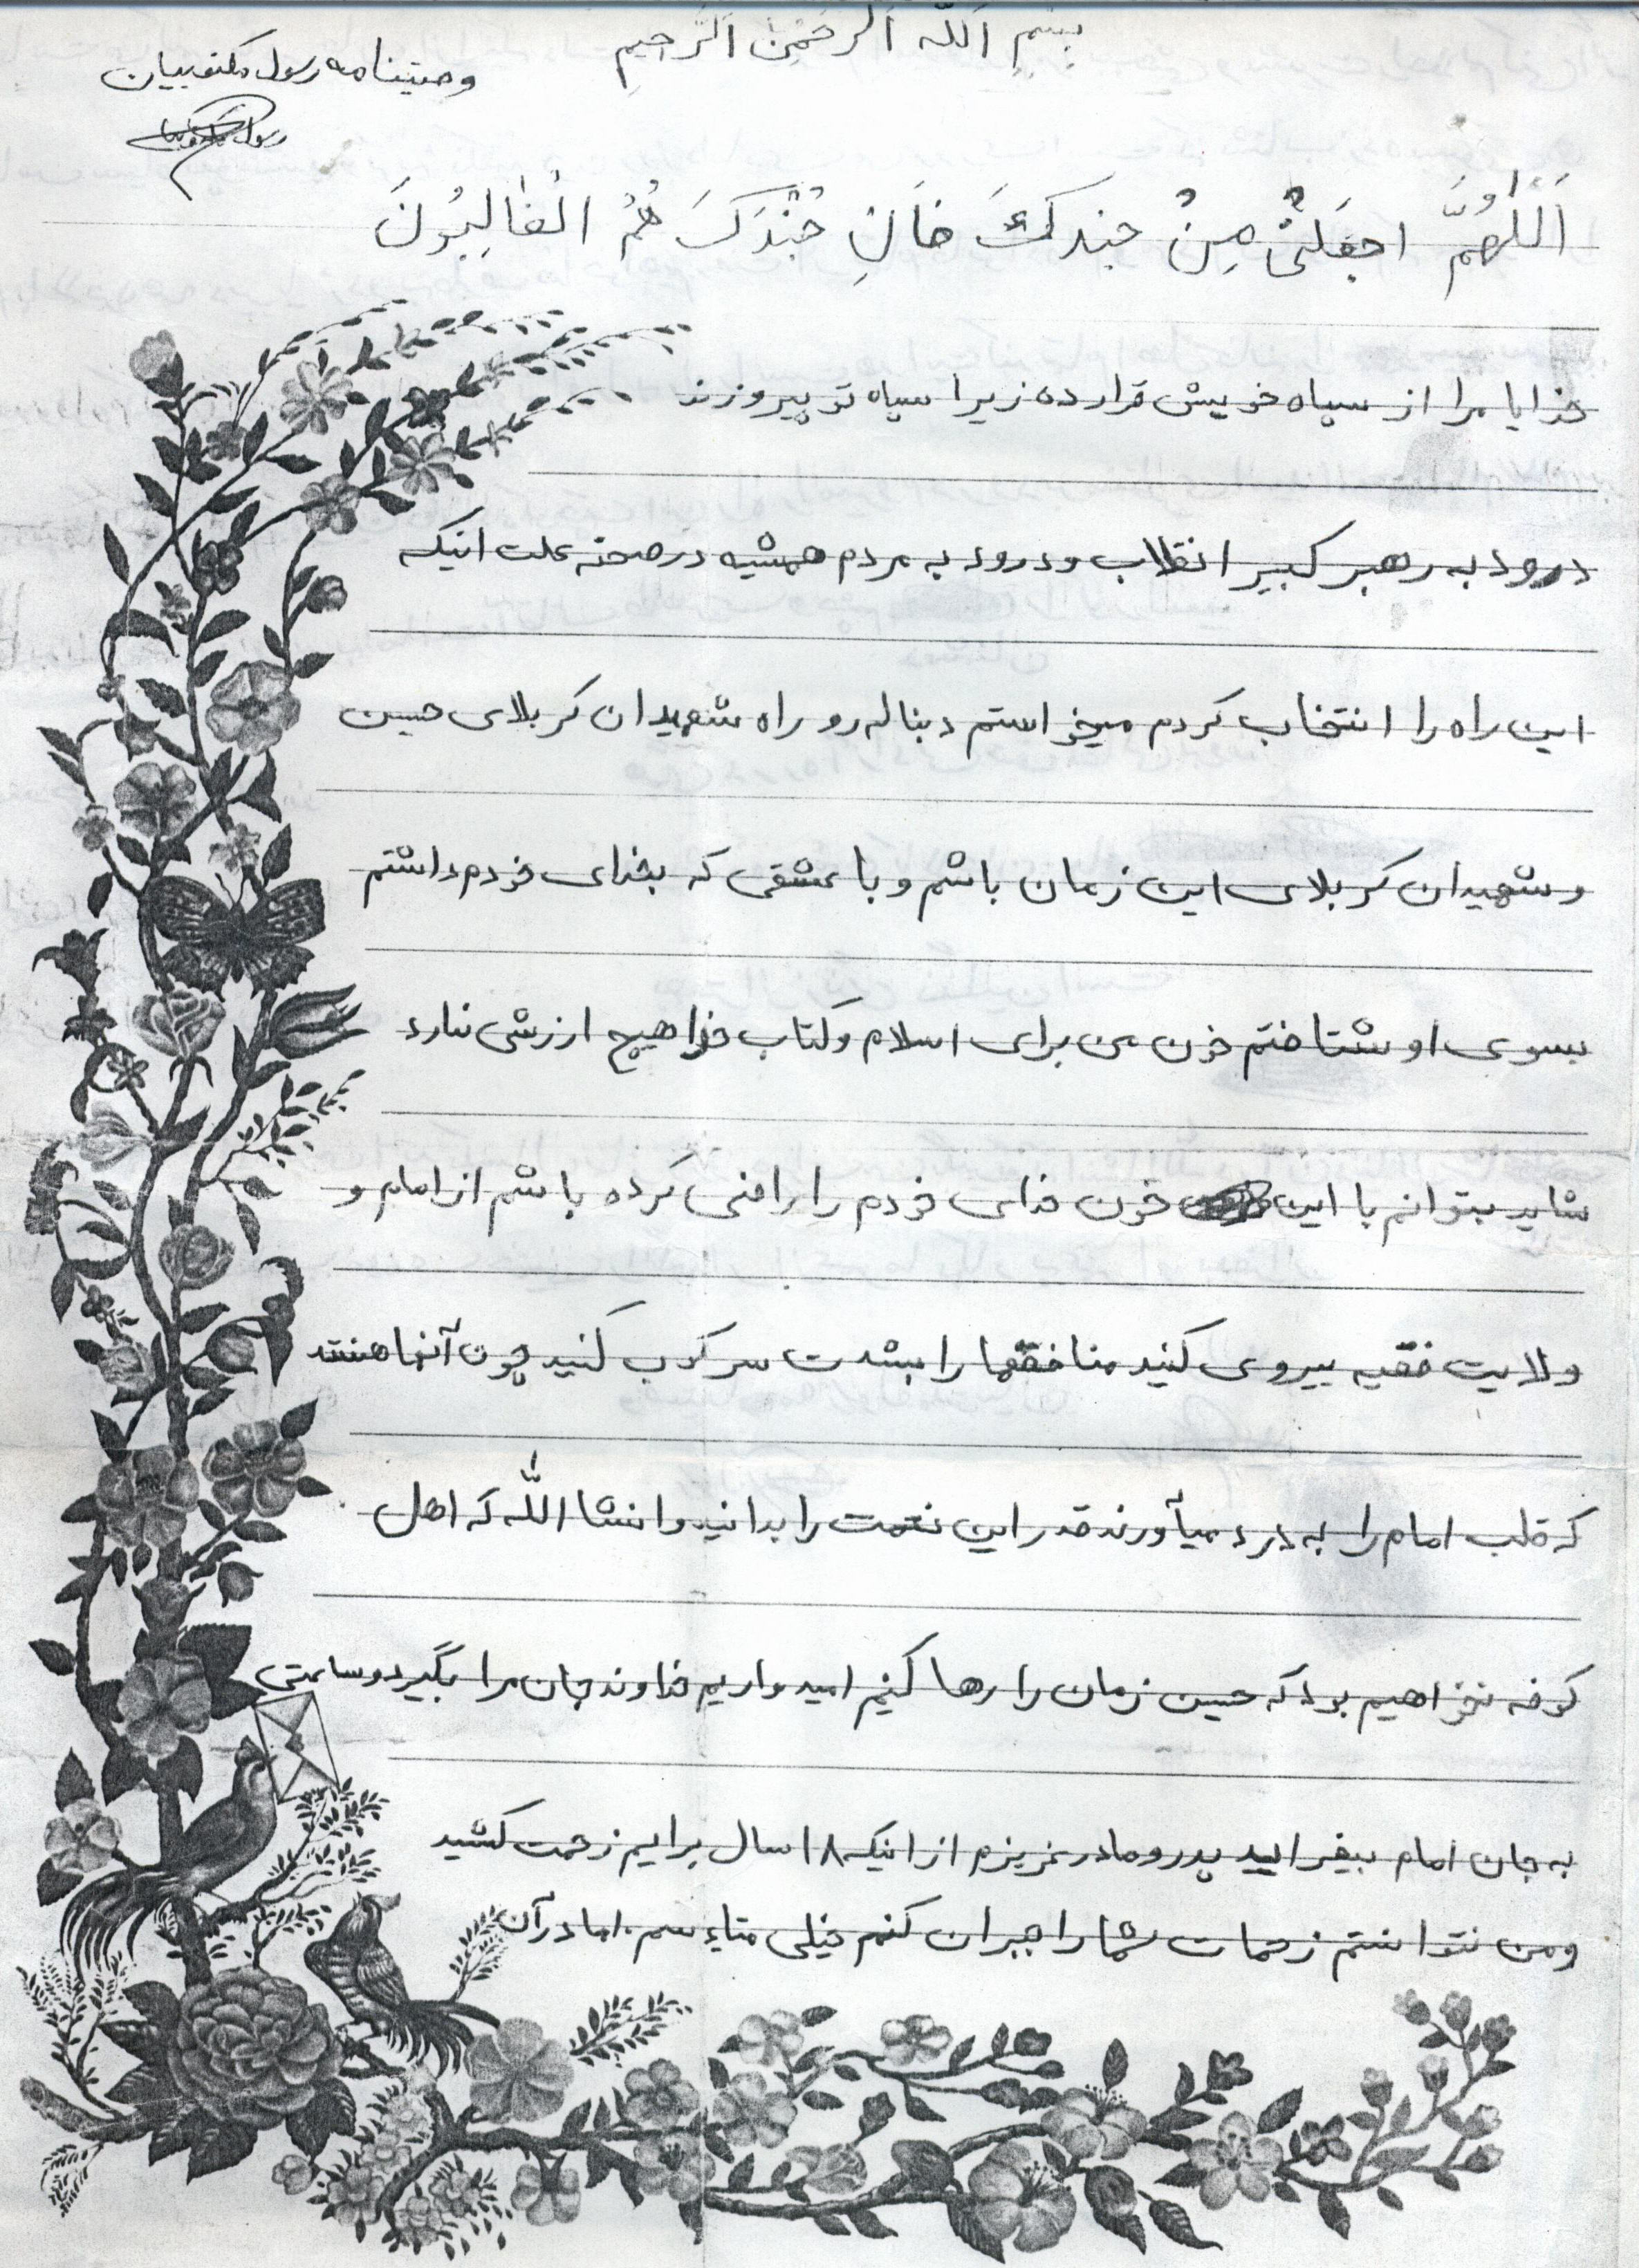 بِسْمِ اَللّه اَلْرَحْمٰنِ اَلْرَّحیمِ
وصیتنامه رسول مکتوبیان
اَللّهُمَّ اجعَلنْی مِنْ جندکَ فَاَنِ جُنْدَکَ هُمُ الْغالِبُونَ
خدایا مرا از سپاه خویش قرار ده زیرا سپاه تو پیروزند
درود به رهبر کبیر انقلاب و درود به مردم همشیه در صحنه علت اینکه
این راه را انتخاب کردم میخواستم دنباله رو راه شهیدان کربلای حسین
و شهیدان کربلای این زمان باشم و با عشقی که بخدای خودم داشتم
بسوی او شتافتم خون من برای اسلام و کتاب خدا هیچ ارزشی ندارد
شاید بتوانم با این خون خدای خودم را راضی کرده باشم از امام و
ولایت فقیه پیروی کنید منافقها را بشدت سرکوب کنید چون آنها هستند
که قلب امام را به درد میآورند قدر این نعمت را بدانید و انشا اللّه که اهل
کوفه نخواهیم بود که حسین زمان را رها کنیم امیدواریم خداوند جان مرا بگیرد و سلامتی
به جان امام بیفزایید پدر و مادر عزیزم از اینکه ۱۸ سال برایم زحمت کشید
و من نتوانستم زحمات شما را جبران کنم خیلی متاءسم. اما در آن